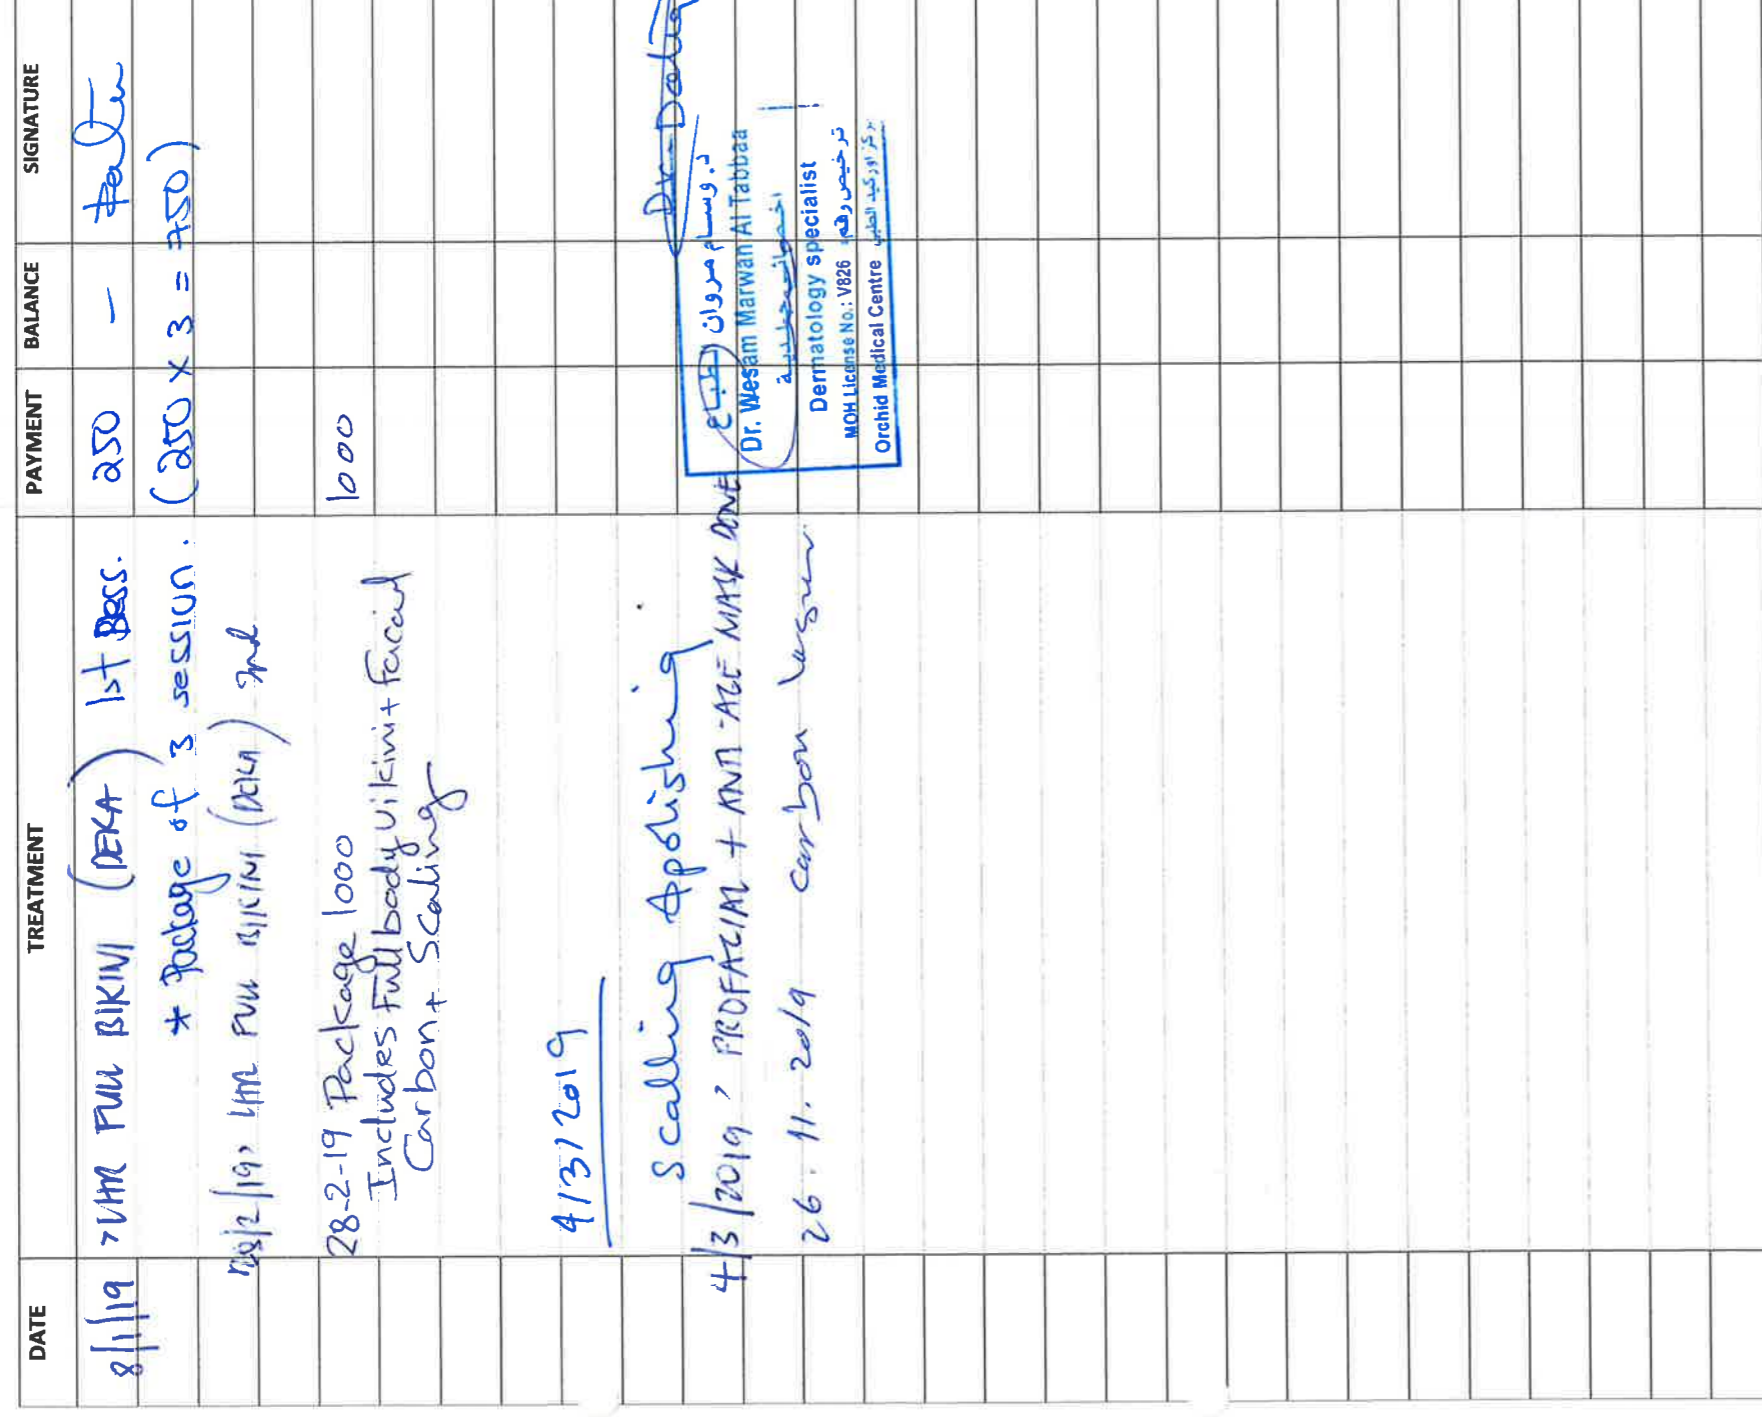 DATE TREATMENT PAYMENT BALANCE SIGNATURE
8/1/19 > LHR FULL BIKINI (DEKA) 1st 250 —
* Package of 3 session. (250 x 3 = 750)
/2/19, LHR FULL BIKINI (DEKA) 2nd
28-2-19 Package 1000 1000
Includes Full body vikini + Facial
Carbon + Scaling
4/3/2019
Scalling Apolishing
4/3/2019, PROFACIAL + ANTI-AGE MASK DONE
26.11.2019 Carbon laser
د. وسام مروان الطباع
Dr. Wesam Marwan Al Tabbaa
اخصائي جلدية
Dermatology specialist
MOH License No.: V826 ترخيص رقم
Orchid Medical Centre مركز اوركيد الطبي